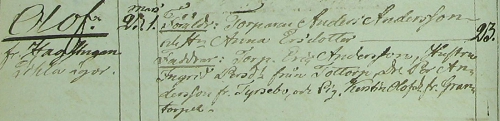 Olof
fr. Haglungen
Tekla ägor.
mars
23. 1.
Föräldr: Torparen Anders Andersson
och H. Anna Ersdotter
Faddrar: Torp. Eric Andersson, Hustru
Ingrid Persd. från Tottorp, Dr. Per An-
dersson fr. Tyrsebo, och Pig. Kerstin Olofsd. fr. Gran-
torpet.
23.